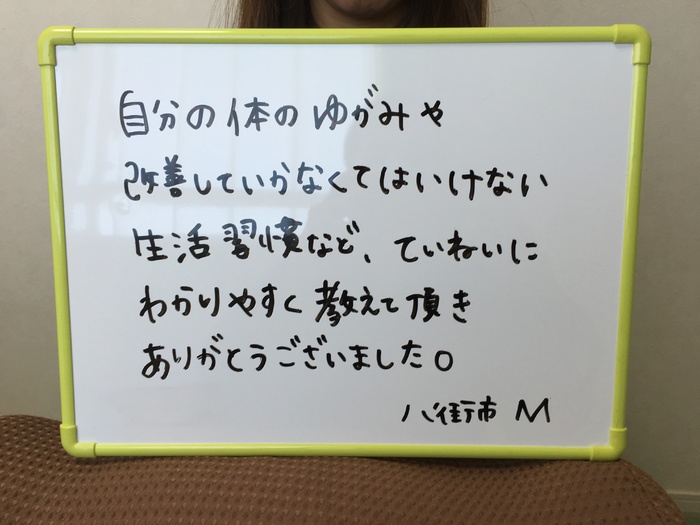 自分の体のゆがみや
改善していかなくてはいけない
生活習慣など、ていねいに
わかりやすく教えて頂き
ありがとうございました。
八街市 M